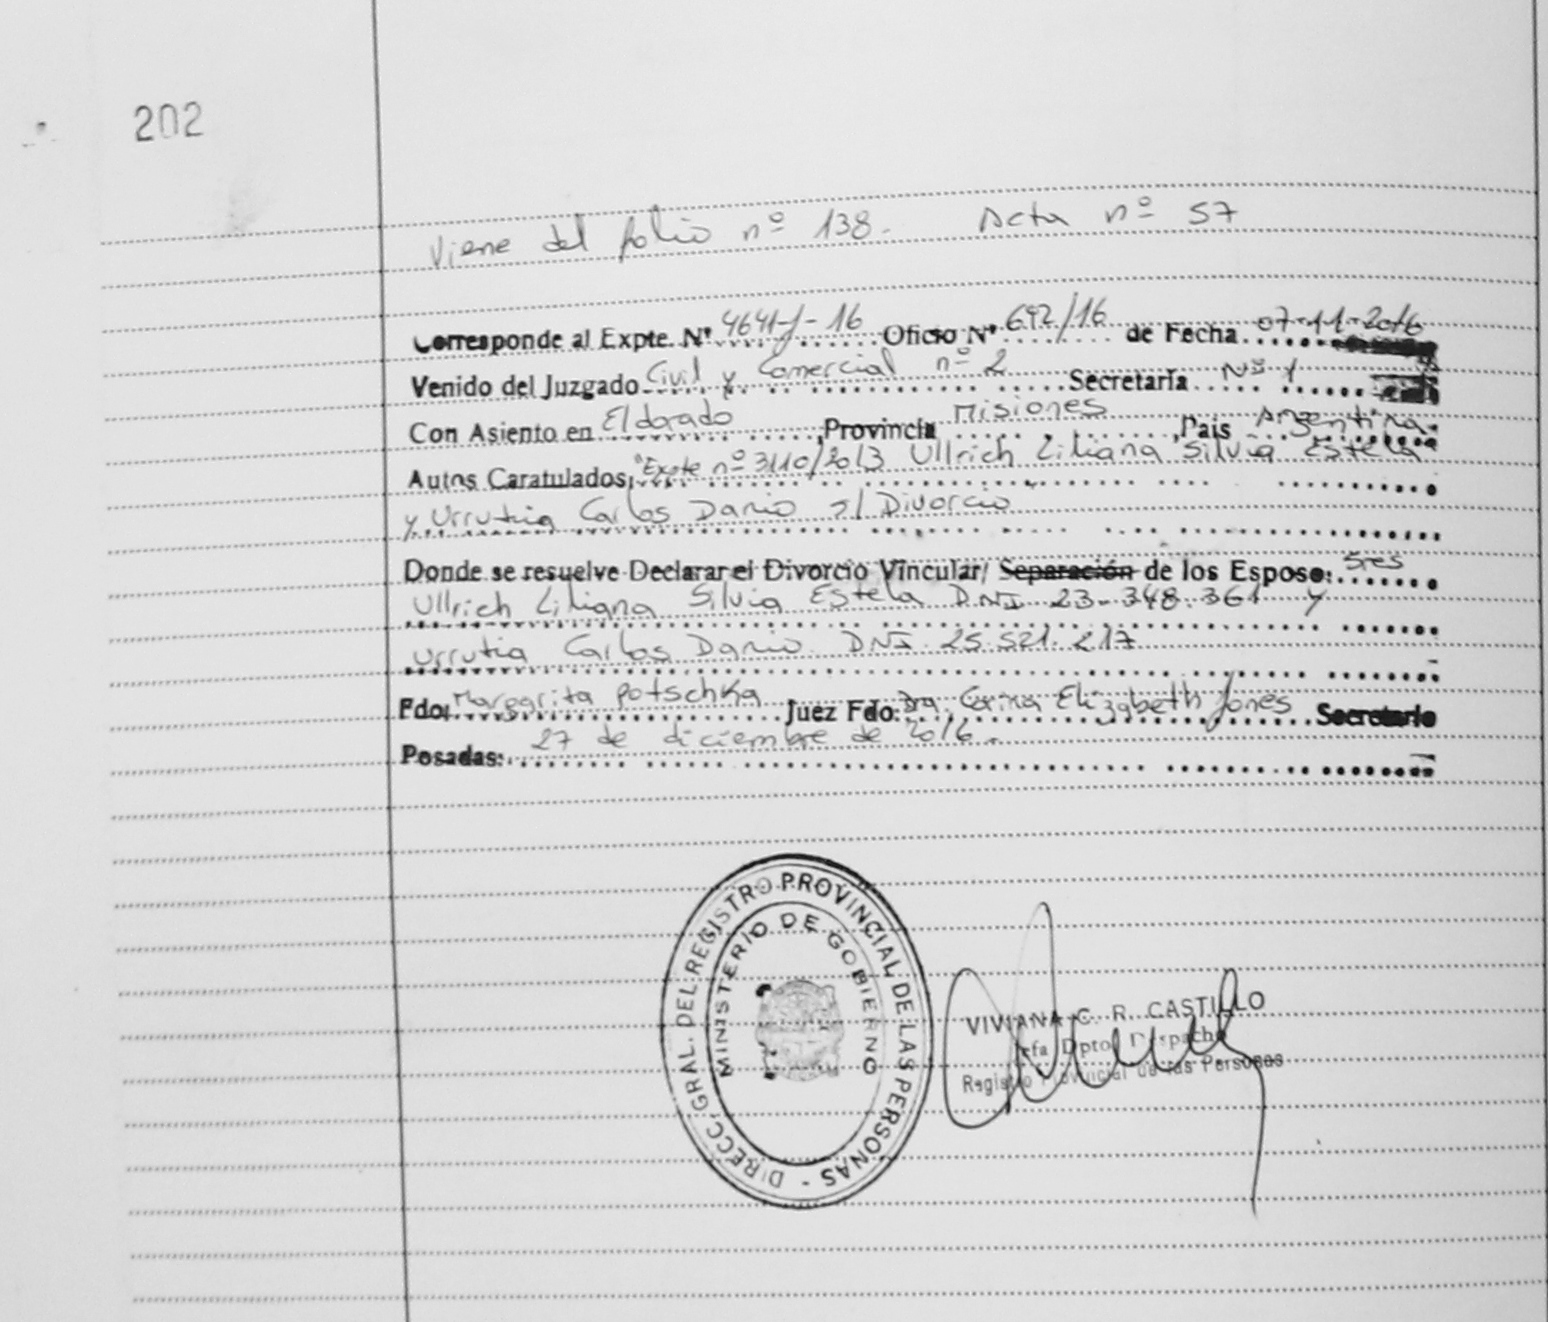 202
Viene del folio nº 138. Acta nº 57
Corresponde al Expte. Nº 4641-J-16 Oficio Nº 692/16 de Fecha 07-11-2016
Venido del Juzgado Civil y Comercial nº 2 Secretaría Nº 1
Con Asiento en Eldorado, Provincia Misiones, País Argentina.
Autos Caratulados: "Expte nº 3110/2013 Ullrich Liliana Silvia Estela
y Urrutia Carlos Dario s/ Divorcio
Donde se resuelve Declarar el Divorcio Vincular/ Separación de los Esposo: Sres
Ullrich Liliana Silvia Estela DNI 23.348.361 y
Urrutia Carlos Dario DNI 25.521.217
Fdo: Margarita Potschka Juez Fdo: Dra. Corina Elizabeth Jones Secretario
Posadas: 27 de diciembre de 2016.
DIRECC. GRAL. DEL REGISTRO PROVINCIAL DE LAS PERSONAS -
MINISTERIO DE GOBIERNO
VIVIANA C. R. CASTILLO
Jefa Dpto. Despacho
Registro Provincial de las Personas